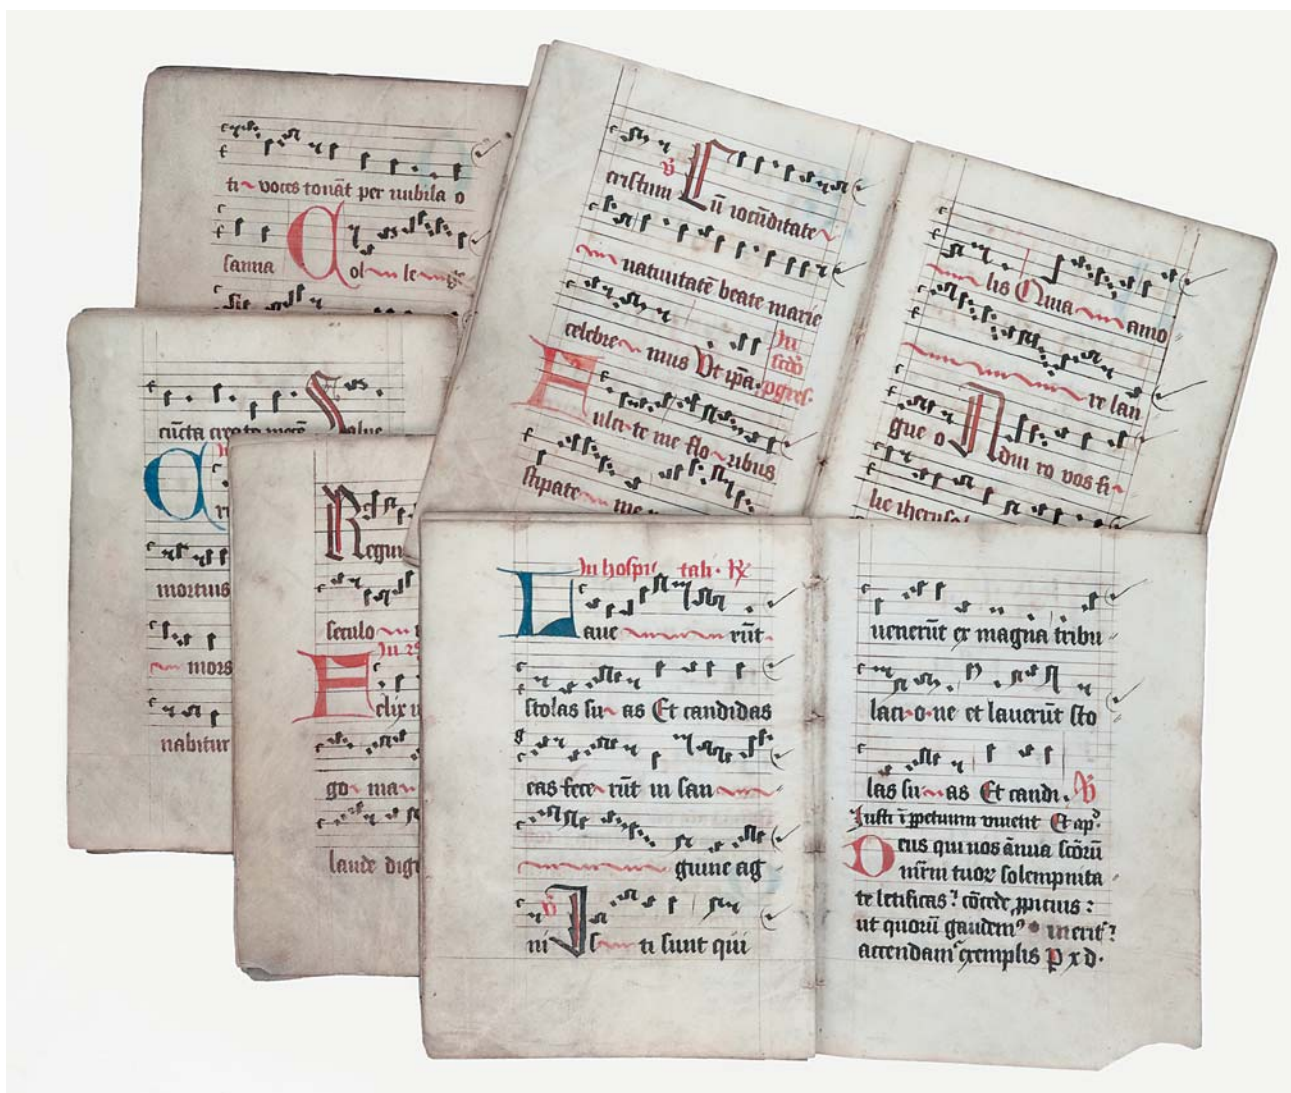 ti voces tonāt per nubila o
sanna Col le
cristum Cū iocūditate
natiuitatē beate marie
celebre mus Vt ip̄a In
scdō
pgres.
Fulci te me flo ribus
stipate me
lis Quia amo
re lan
gue o Adiu ro vos fi
lie iherusal
cūcta creata Salue
mortuus
mors
nabitur
Regu
seculo
In
Felix
go ma
laude dig
In hospi tali. R̸
Laue rūt
stolas su as Et candidas
eas fece rūt in san
guine ag
ni Is ti sunt qui
uenerūt ex magna tribu
laci o ne et lauerūt sto
las su as Et candi. V̸
Iusti ī ppetuum viuent Et apᵒ.
Deus qui nos ānua scōrū
tuoꝝ solempnita
te letificas? cōcede ꝓpicius:
ut quorū gaudemꝰ merit?
accendamr exemplis p x d.